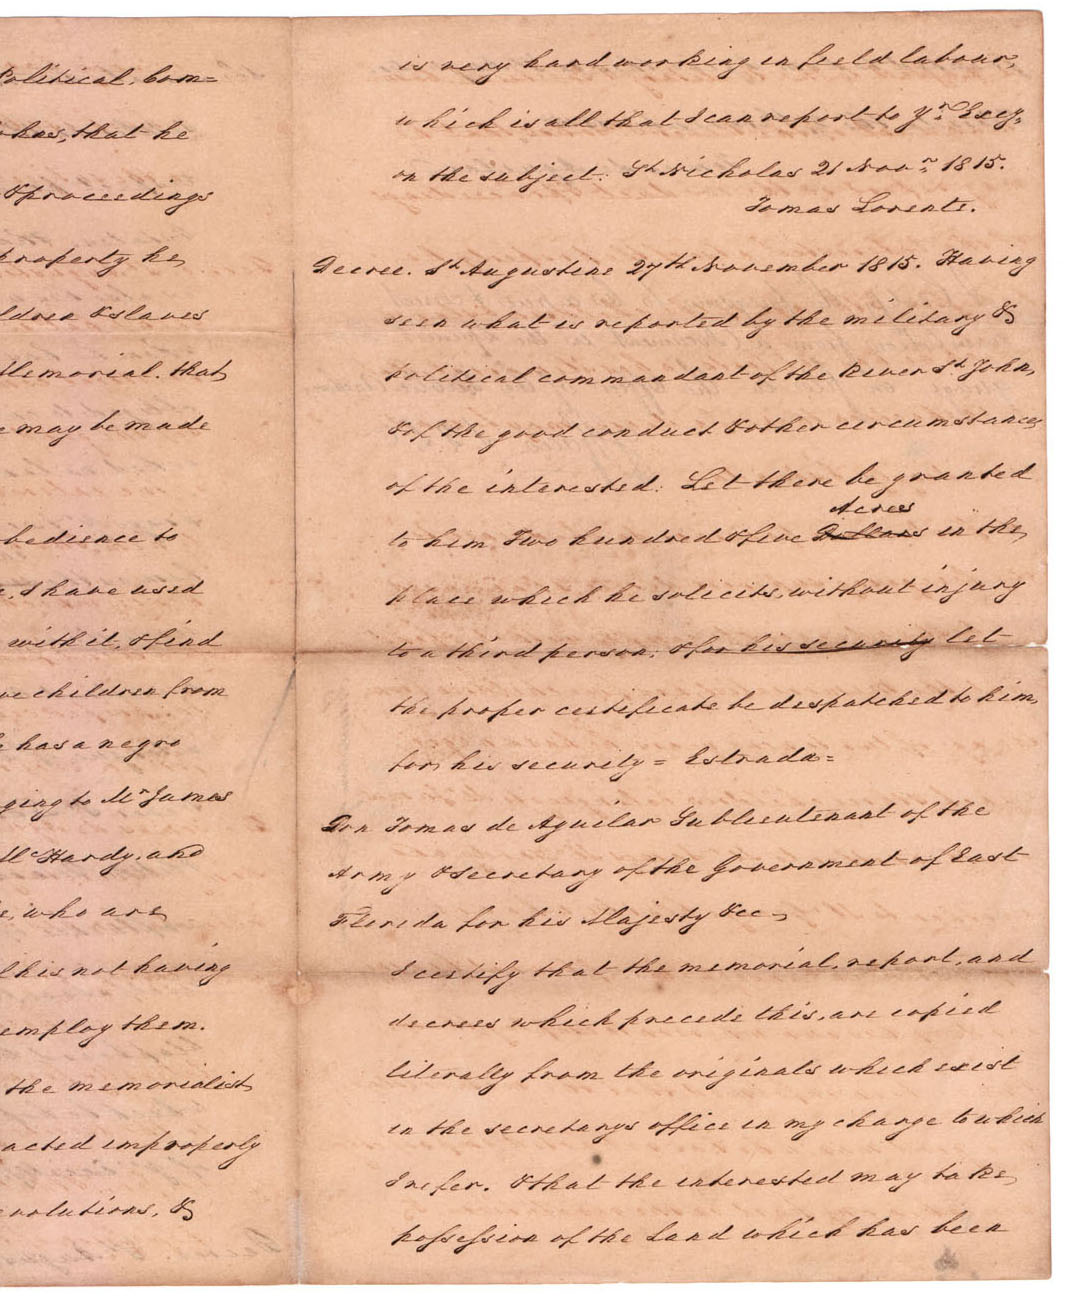 Political Com=
has, that he
& proceedings
property he
ldren & slaves
Memorial. that
e may be made
bedience to
e, I have used
with it, & find
ve children from
he has a negro
ging to Mr. James
McHardy, and
e, who are
his not having
employ them.
the memorialist
acted improperly
evolutions, &
is very hard working in field labour,
which is all that I can report to Yr. Excy,
on the subject. St. Nicholas 21 Novr. 1815.
Tomas Lorente.
Decree. St. Augustine 27th November 1815. Having
seen what is reported by the military &
Political commandant of the River St. John,
& of the good conduct & other circumstances
of the interested. Let there be granted
Acres
to him Two hundred & five Dollars in the
place which he solicits, without injury
to a third person; & for his security let
the proper certificate be despatched to him,
for his security = Estrada =
Don Tomas de Aguilar Sublieutenant of the
Army & secretary of the Government of East
Florida for his Majesty &c
I certify that the memorial, report, and
decrees which precede this, are copied
literally from the originals which exist
in the secretarys office in my charge to which
I refer. & that the interested may take
possession of the Land which has been